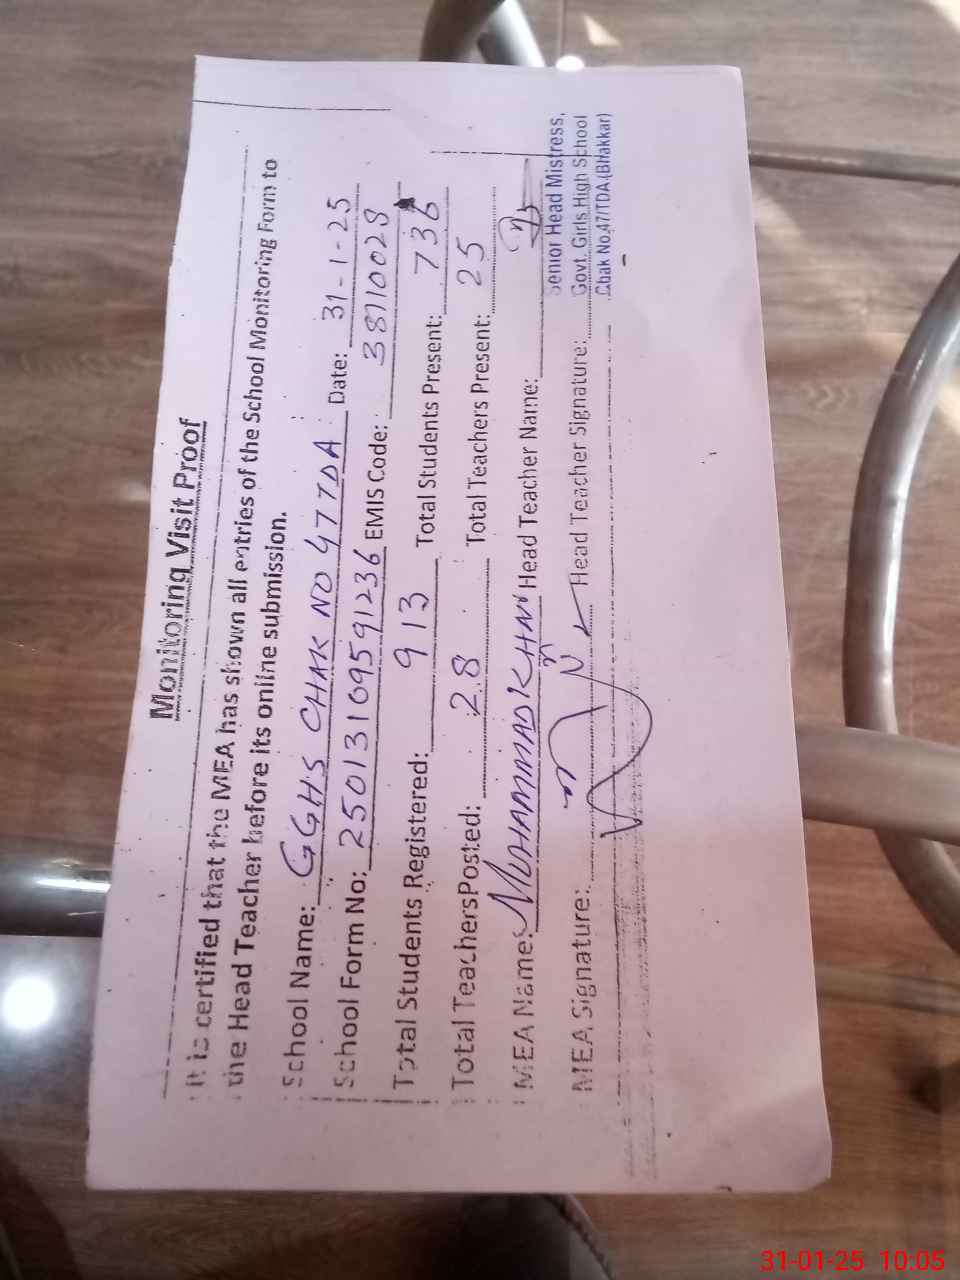 Monitoring Visit Proof
It is certified that the MEA has shown all entries of the School Monitoring Form to
the Head Teacher before its online submission.
School Name: GGHS CHAK NO 47 TDA Date: 31-1-25
School Form No: 25013109591236 EMIS Code: 38710028
Total Students Registered: 913 Total Students Present: 736
Total Teachers Posted: 28 Total Teachers Present: 25
MEA Name: MUHAMMAD KHAN Head Teacher Name:
MEA Signature: Head Teacher Signature:
Senior Head Mistress,
Govt. Girls High School
Chak No.47/TDA.(Bhakkar)
31-01-25 10:05